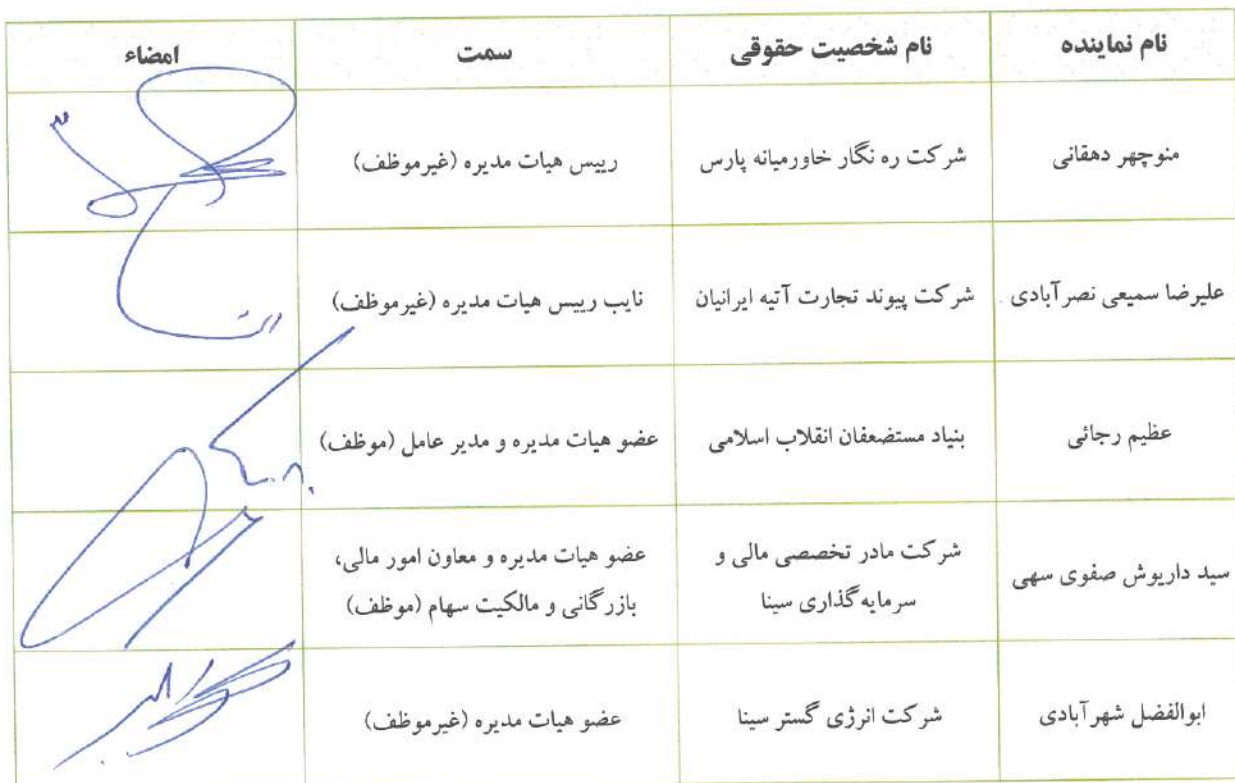 نام نماینده نام شخصیت حقوقی سمت امضاء
منوچهر دهقانی شرکت ره نگار خاورمیانه پارس رییس هیات مدیره (غیرموظف)
علیرضا سمیعی نصرآبادی شرکت پیوند تجارت آتیه ایرانیان نایب رییس هیات مدیره (غیرموظف)
عظیم رجائی بنیاد مستضعفان انقلاب اسلامی عضو هیات مدیره و مدیر عامل (موظف)
سید داریوش صفوی سهی
شرکت مادر تخصصی مالی و
سرمایه‌گذاری سینا
عضو هیات مدیره و معاون امور مالی،
بازرگانی و مالکیت سهام (موظف)
ابوالفضل شهرآبادی شرکت انرژی گستر سینا عضو هیات مدیره (غیرموظف)